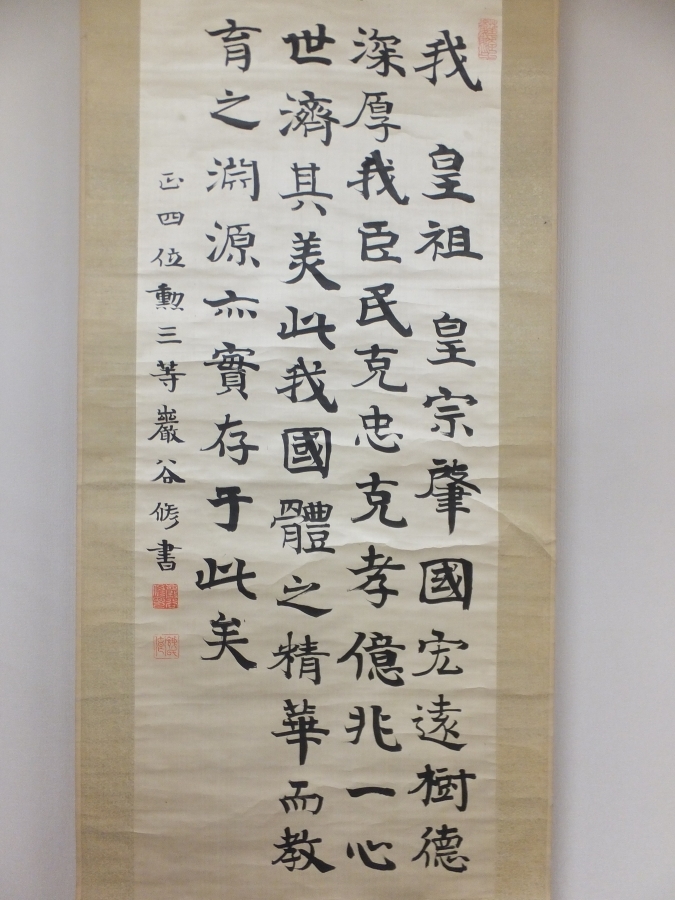 我 皇祖 皇宗肇國宏遠樹德
深厚我臣民克忠克孝億兆一心
世濟其美此我國體之精華而教
育之淵源亦實存于此矣
正四位勲三等巖谷修書